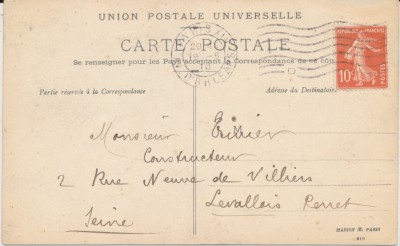 UNION POSTALE UNIVERSELLE
CARTE POSTALE
Se renseigner pour les Pays acceptant la Correspondance de ce côté
Partie réservée à la Correspondance
Adresse du Destinataire
REPUBLIQUE FRANÇAISE
10c
POSTES
Monsieur
Constructeur
2 Rue Neuve de Villiers
Levallois Perret
Seine
MARION PARIS